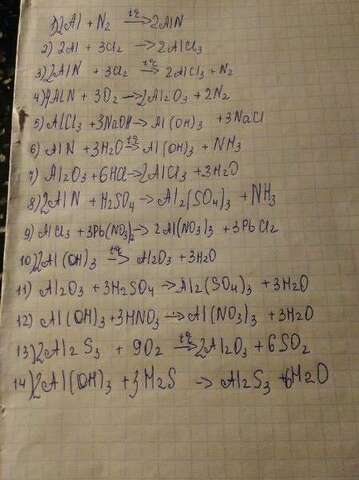 1) 2Al + N₂ —t°c→ 2AlN
2) 2Al + 3Cl₂ → 2AlCl₃
3) 2AlN + 3Cl₂ —t°c→ 2AlCl₃ + N₂
4) 4AlN + 3O₂ → 2Al₂O₃ + 2N₂
5) AlCl₃ + 3NaOH → Al(OH)₃ + 3NaCl
6) AlN + 3H₂O —t°c→ Al(OH)₃ + NH₃
7) Al₂O₃ + 6HCl → 2AlCl₃ + 3H₂O
8) 2AlN + H₂SO₄ → Al₂(SO₄)₃ + NH₃
9) AlCl₃ + 3Pb(NO₃)₂ → 2Al(NO₃)₃ + 3PbCl₂
10) 2Al(OH)₃ —t°c→ Al₂O₃ + 3H₂O
11) Al₂O₃ + 3H₂SO₄ → Al₂(SO₄)₃ + 3H₂O
12) Al(OH)₃ + 3HNO₃ → Al(NO₃)₃ + 3H₂O
13) 2Al₂S₃ + 9O₂ —t°c→ 2Al₂O₃ + 6SO₂
14) 2Al(OH)₃ + 3H₂S → Al₂S₃ + 6H₂O